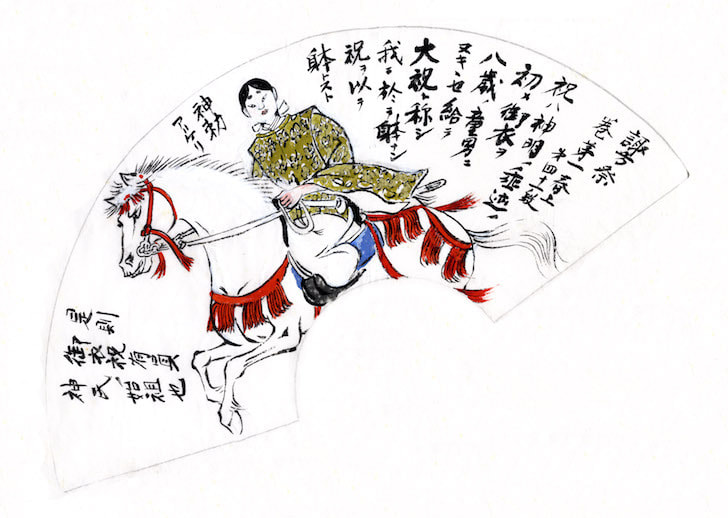 諏方祭
巻第一春上
祝ハ神明ノ垂迹ノ
初メ御衣ヲ
八歳ノ童男ニ
ヌキキセ給テ
大祝ト称シ
我ニ於テ躰ナシ
祝ヲ以テ
躰トスト
神勅
アリケリ
是則
御衣祝有員
神氏ノ始祖也